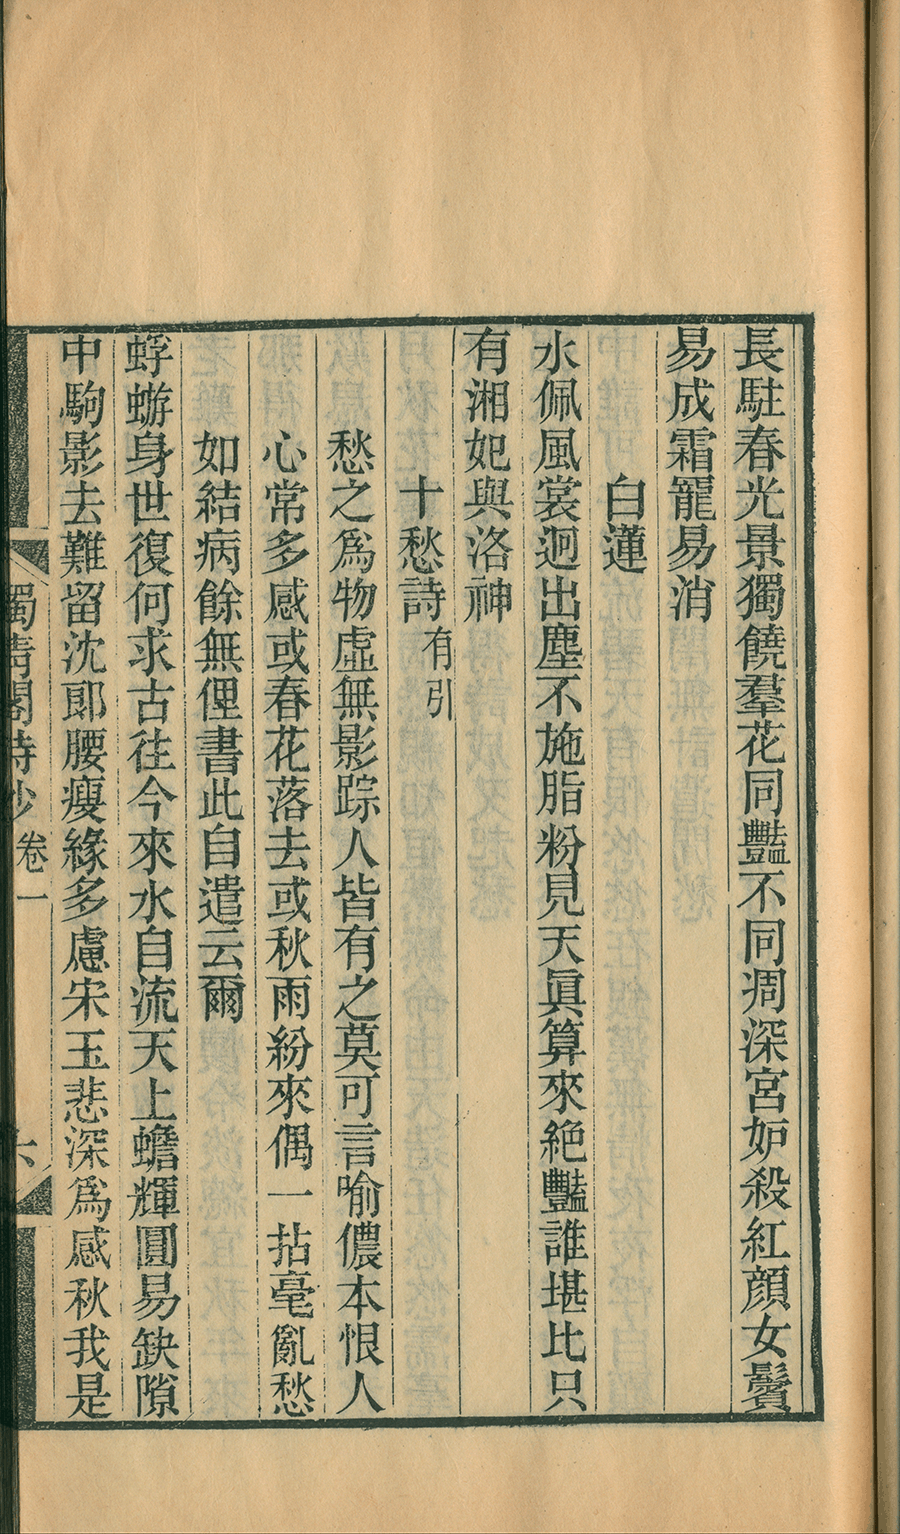 長駐春光景獨饒羣花同豔不同凋深宮妒殺紅顏女鬢
易成霜寵易消
白蓮
水佩風裳迥出塵不施脂粉見天眞算來絶豔誰堪比只
有湘妃與洛神
十愁詩有引
愁之爲物虛無影踪人皆有之莫可言喻儂本恨人
心常多感或春花落去或秋雨紛來偶一拈毫亂愁
如結病餘無俚書此自遣云爾
蜉蝣身世復何求古往今來水自流天上蟾輝圓易缺隙
中駒影去難留沈郞腰瘦緣多慮宋玉悲深爲感秋我是
獨清閣詩鈔卷一 六